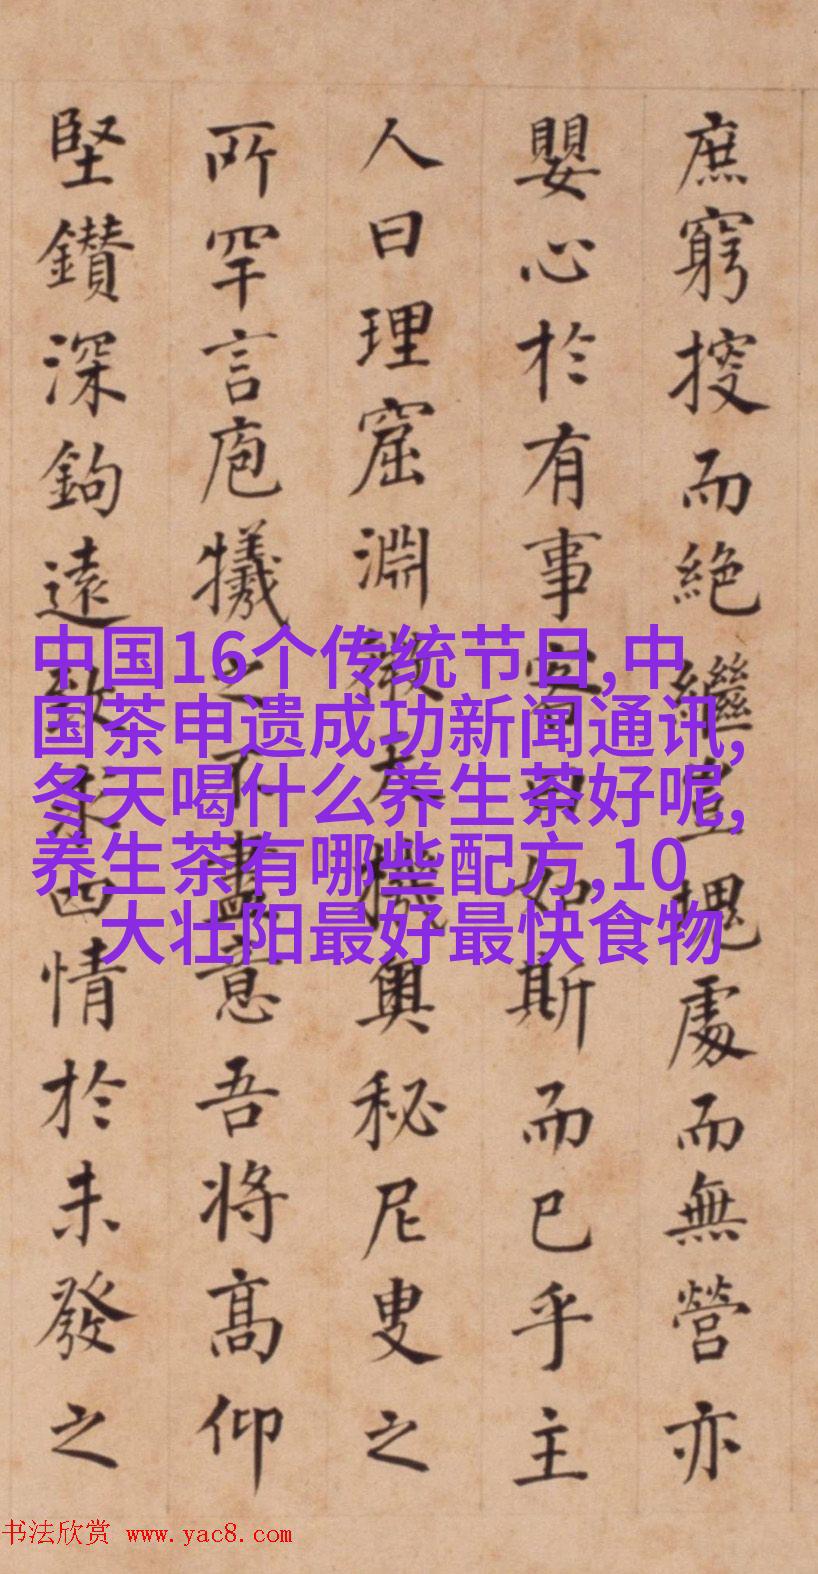 庶窮搜而絶繼塊處而無營亦
嬰心於有事客如斯而已乎主
人曰理窟淵微夫機奥秘尼叟之
所罕言庖犧之不盡意吾將高仰
堅鑽深鉤遠致求四情於未發之
中国16个传统节日,中
国茶申遗成功新闻通讯,
冬天喝什么养生茶好呢,
养生茶有哪些配方,10
大壮阳最好最快食物
书法欣赏 www.yac8.com